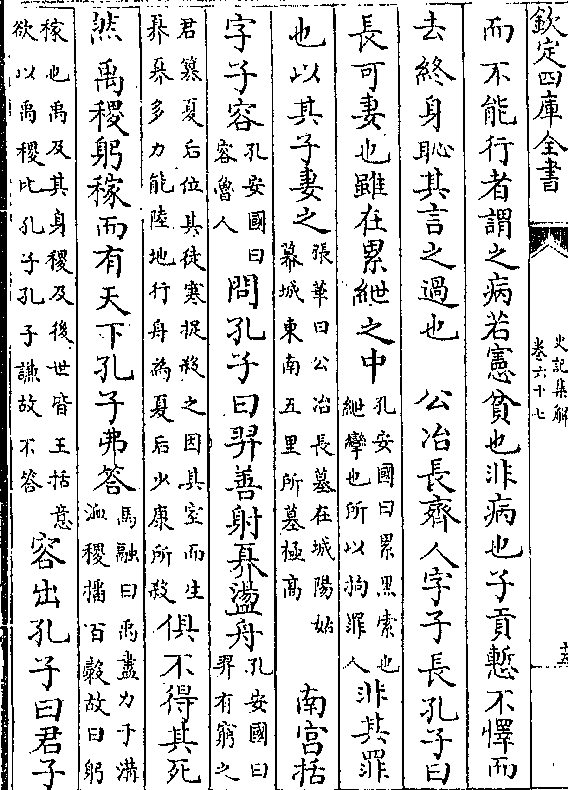 欽定四庫全書
史記集解
卷六十七
而不能行者謂之病若憲貧也非病也子貢慙不懌而
去終身恥其言之過也　公冶長齊人字子長孔子曰
長可妻也雖在累紲之中孔安國曰累黑索也紲攣也所以拘罪人非其罪
也以其子妻之張華曰公冶長墓在城陽姑幕城東南五里所墓極高　南宫括
字子容孔安國曰容魯人問孔子曰羿善射奡盪舟孔安國曰羿有窮之
君簒夏后位其徒寒捉殺之因其室而生奡奡多力能陸地行舟為夏后少康所殺俱不得其死
然禹稷躬稼而有天下孔子弗答馬融曰禹盡力于溝洫稷播百穀故曰躬
稼也禹及其身稷及後世皆王括意欲以禹稷比孔子孔子謙故不答容出孔子曰君子